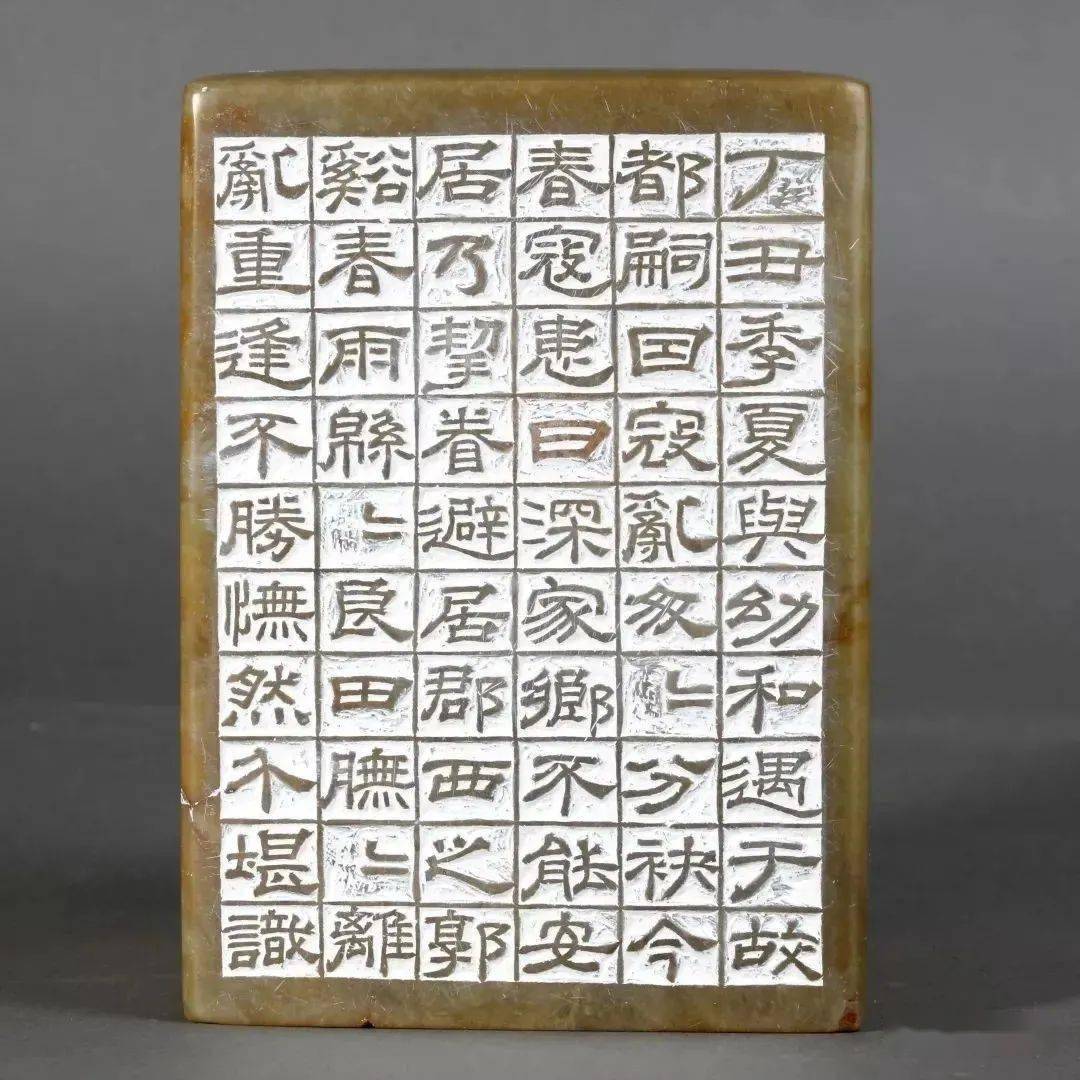 丁丑季夏與幼和遇于故
都嗣囙寇亂匆〻分袂今
春寇患日深家鄉不能安
居乃挈眷避居郡西之郭
谿春雨緜〻良田膴〻離
亂重逢不勝憮然介堪識